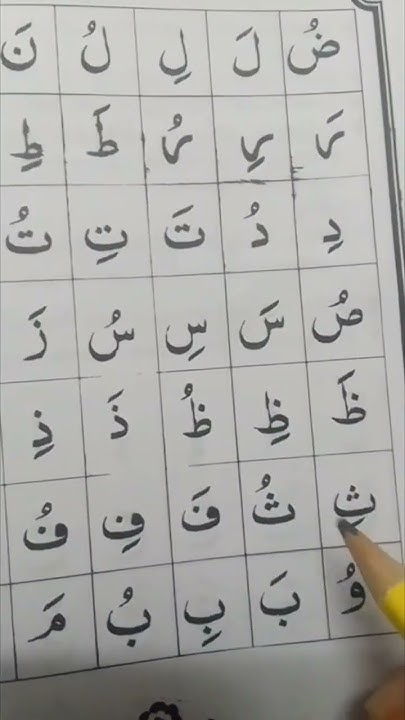 ضُ لَ لِ لُ نَ
رَ رِ رُ طَ طِ
دِ دُ تَ تِ تُ
صُ سَ سِ سُ زَ
ظَ ظِ ظُ ذَ ذِ
ثِ ثُ فَ فِ فُ
وُ بَ بِ بُ مَ